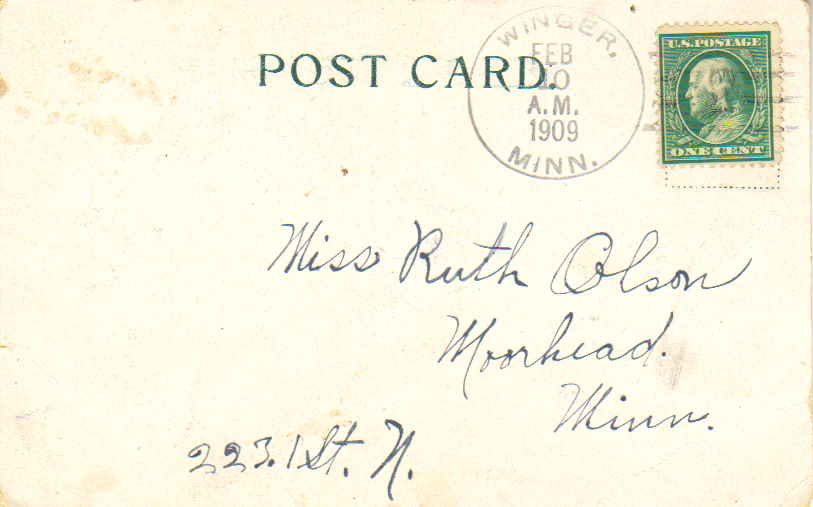 POST CARD.
WINGER,
FEB
10
A.M.
1909
MINN.
U.S. POSTAGE
ONE CENT
Miss Ruth Olson
Moorhead.
Minn.
223. 1 St. N.